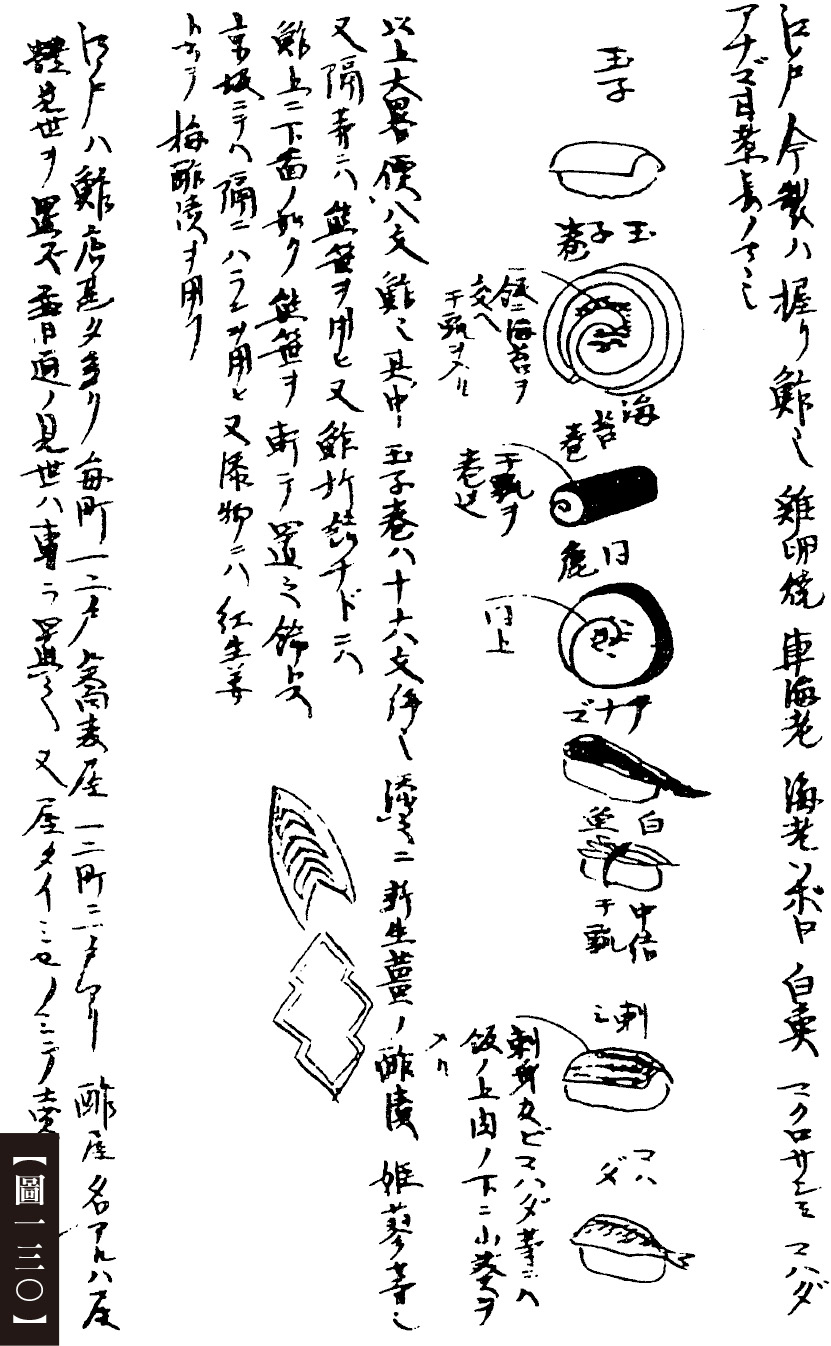 江戸今製ハ握リ鮓也 雞卵焼 車海老 海老ソボロ 白魚 マクロサシミ コハダ
アナゴ甘煮長ノマヽ也
玉子
玉子巻
飯ニ海苔ヲ
交ヘ
干瓢ヲ入ル
海苔巻
干瓢ヲ
巻込
同麁
同上
アナゴ
白魚
中結
干瓢
刺ミ
刺身及ビコハダ等ニハ
飯ノ上肉ノ下ニ山葵ヲ
入ル
コハダ
以上大畧價八文鮓也 其中玉子巻ハ十六文許也 添之ニ新生薑ノ酢漬 姫蓼等也
又隔等ニハ熊笹ヲ用ヒ又鮓折詰ナドニハ
鮓上ニ下圖ノ如ク熊笹ヲ斬テ置之飾トス
京坂ニテハ隔ニハランヲ用ヒ又添物ニハ紅生姜
ト云テ梅酢漬ヲ用フ
江戸ハ鮓店甚タ多ク毎町一二戸 蕎麦屋一二町ニ一戸アリ 酢屋名アルハ屋
體見世ヲ置ズ 普通ノ見世ハ專ラ置之 又屋タイミセノミニテ賣
【圖一三〇】